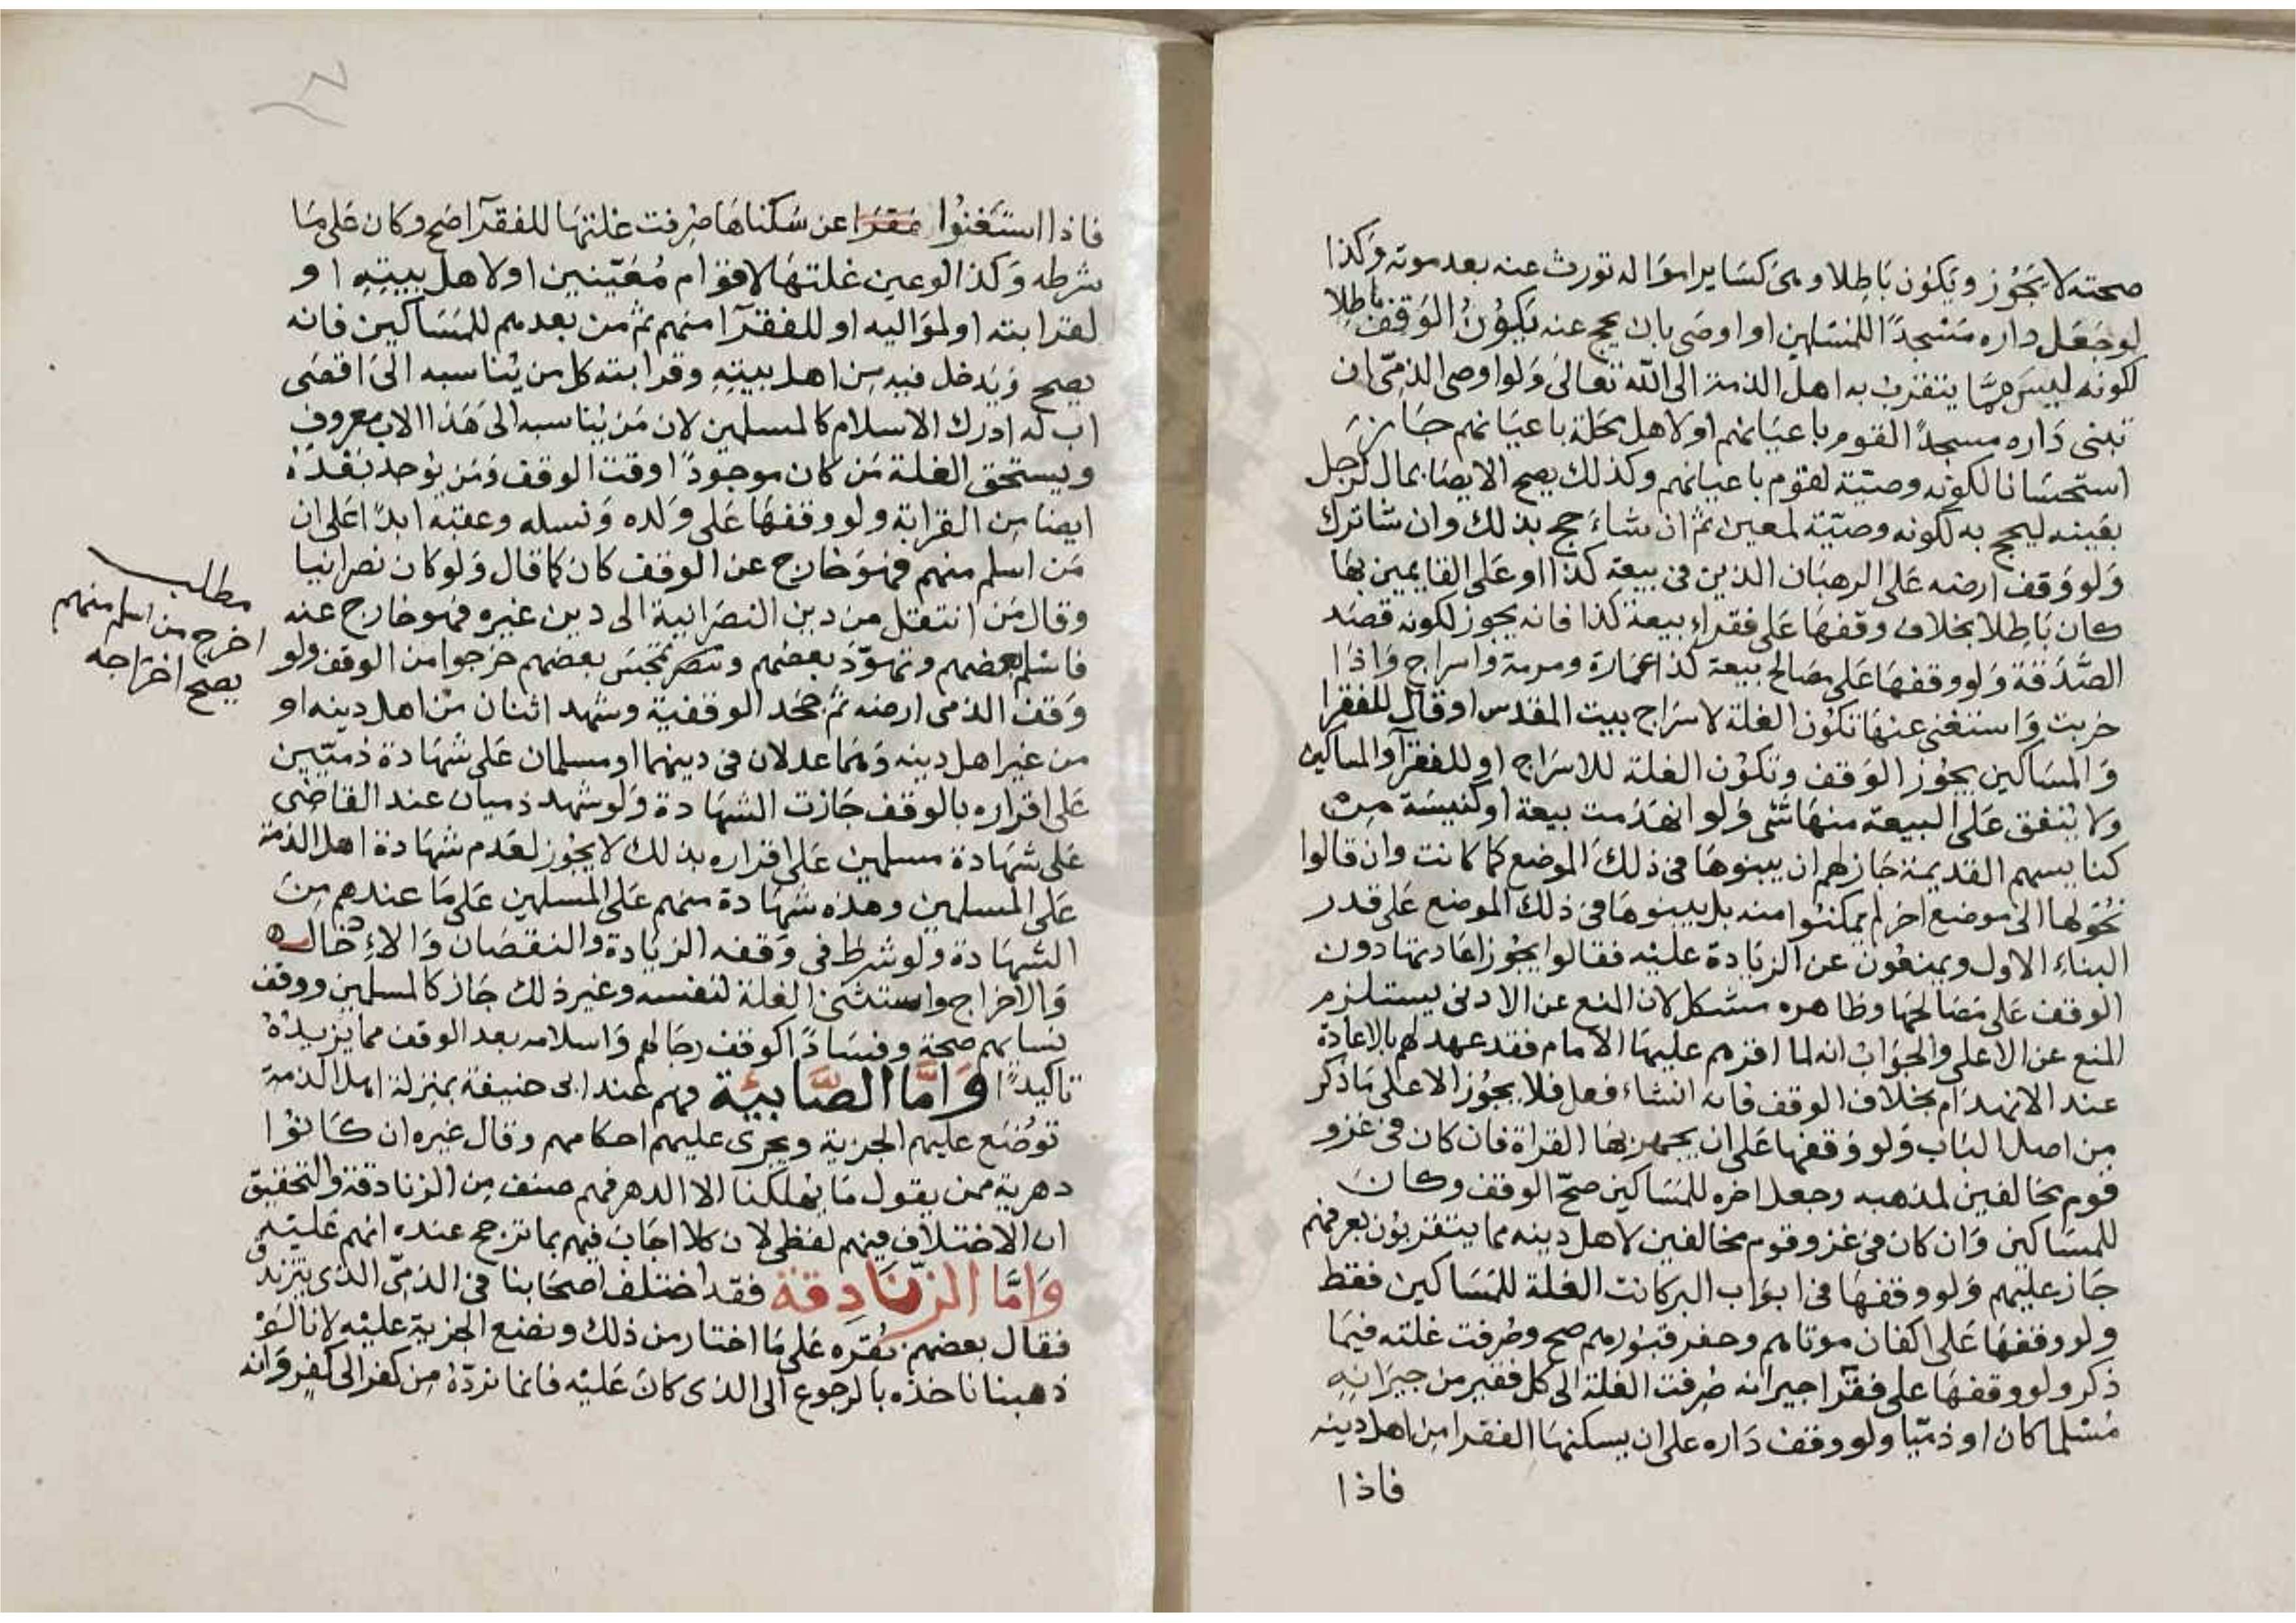 صحته لا يَجُوز ويَكون بَاطِلا وهى كسَاير امواله تورث عنه بعد موته وَكذا
لو جَعَل داره مَسْجدًا للمسَلمين او اوصَى بان يحج عنه يَكوُنُ الوَقف باطِلا
لكونه ليسَ ممّا يتقرب به اهل الذمة الى الله تعالىَ وَلو اوصى الذمّى ان
تبنى دَاره مسجدًا لقوم باعيَانهم او لاهل محَلة باعيَانهم جَازَ
استحسَانا لكونه وصيّة لقوم باعيانهم وكذلك يصح الايصَا بمال لرجل
بعَينه ليحج به لكونه وصيّة لمعين ثم ان شاءَ حج بذلك وان شا ترك
وَلو وَقف ارضه عَلى الرهبَان الذين فى بيعة كذا او عَلى القايمين بهَا
كان بَاطِلا بخلاف وقفهَا عَلى فقراء بيعة كذا فانه يجوز لكونه قصَد
الصَّدَقة وَلو وقفهَا عَلى مصَالح بيعة كذا عمَارة ومرمة واسراج وَاذَا
خربت وَاستغنى عنهَا تكوُن الغلة لاسرَاج ببيت المقدس او قال للفقرا
وَالمسَاكين يجوُز الوَقف وتكوُن الغلة للاسرَاج او للفقرآ والمسَاكين
وَلا يُنفق عَلى البيعة منهَا شَى وَلو انهدَمت بيعة او كنيسَة مِن
كنايسهم القديمة جَاز لهم ان يبنوهَا فى ذلك الموضع كما كانت وان قالوا
نحُوّلها الى موضع اخر لم يمكنُوا منه بل يبنوهَا فى ذلك الموضع عَلى قدر
البناء الاول ويمنعُون عن الزيَادة عليْه فقالوا يجُوز اعَادتهَا دون
الوقف عَلى مَصَالحهَا وظاهره مشكل لان المنع عن الادنى يستلزم
المنع عن الاعلى والجوَاب انه لما اقرهم عليهَا الامام فقد عهد لهم بالاعَادة
عند الانهدَام بخلاف الوقف فانه انشاء فعل فلا يجوُز الا على مَا ذكر
من اصل البَاب وَلو وَقفهَا عَلى ان يجهز بهَا الغزاة فان كان فى غزو
قوم مخالفين لمذهبه وجعل اخره للمسَاكين صحّ الوقف وكانَ
للمسَاكين وَان كان فى غزو قوم مخالفين لاهل دينه مما يتقربُون بغزوهم
جَاز عليهم وَلو وقفهَا فى ابوَاب البر كانت الغلة للمَسَاكين فقط
ولو وقفهَا عَلى اكفان موتاهم وحفر قبُورهم صح وصُرفت غلته فيمَا
ذكر ولو وقفهَا على فقرآ جيرانه صُرفت الغلة الى كل فقير من جيرَانِهِ
مُسْلما كان او ذمّيا ولو وقف دَاره على ان يسكنهَا الفقرا مِن اهل دينه
فاذا
فاذا استَغنوُا عن سَكناهَا صُرفت غلتهَا للفقرَآ صَح وكان عَلى مَا
شرطه وَكذا لو عين غلتهَا لاقوام مُعَيّنين او لاهل بيتِهِ او
لقرابته او لموَاليه او للفقرَآ منهم ثم من بعدهم للمَسَاكين فانه
يصح وَيَدخل فيه مِن اهل بيتِهِ وقرابته كل من يُناسبه الىَ اقصَى
اب له ادرك الاسلام كالمسلمين لان مَن يُناسبه الىَ هَذا الاب معروف
ويستحق الغلة مَن كان موجودًا وقت الوقف وَمَن يوجد بَعْدَهُ
ايضا مِن القرابة ولو وقفهَا عَلى وَلده وَنسله وعقبه ابدًا عَلى ان
مَن اسلم منهم فهوَ خارج عن الوقف كان كما قال وَلو كان نصرانيا
وقال مَن انتقل من دين النصرَانية الى دين غيره فهو خارج عنه
فاسْلم بعضهم وتهوّدَ بعضهم وتمجسَ بعضهم خرجوا من الوقف ولو
وَقف الذمى ارضه ثم جحَد الوقفية وشهد اثنان مْن اهل دينه او
من غير اهل دينه وَهمَا عدلان فى دينهما او مسلمان عَلى شهَادة ذمّيّين
عَلى اقراره بالوقف جَازت الشهَادة وَلو شهد ذميان عند القاضى
عَلى شهَادة مسلمين عَلى اقراره بذلك لا يجُوز لعَدم شهَادة اهل الذمة
عَلى المسلمين وهذه شهَادة منهم عَلى المسلمين عَلى مَا عندهم مِنَ
الشهَادة ولو شرط فى وَقفه الزيَادة والنقصَان وَالادخال
وَالاخراج واستثنى الغلة لنفسه وغير ذلك جَاز كالمسلمين ووقف
نسايهم صحة وفسَادًا كوقف رجَالهم وَاسلامه بعد الوقف مما يَزيدُهُ
تاكيدًا وَامَّا الصَّابيَّة فهم عند ابى حنيفة بمنزلة اهل الذمة
توضَع عليهم الجزية ويجرى عليهم احكامهم وقال غيره ان كَانوُا
دهرية ممن يقول مَا يُهلكنا الا الدهر فهم صنف مِن الزنادقة والتحقيق
ان الاختلاف فيهم لفظى لان كلا اجَابَ فيهم بما ترجح عنده انهم عَليْه
وَامَّا الزّنَادِقة فقد اختلف اصحَابنا فى الذمّى الذى يتزندق
فقال بعضهم نُقرّه عَلى مَا اختار من ذلك ونضع الجزية عليْه لانا لَوْ
ذهبنا ناخذه بالرجوع الى الذى كانَ عَليْه فانما نردّهُ مِن كفر الى كفرٍ وَانه
مطلب
اخرج من اسلم منهم
يصح اخرَاجه